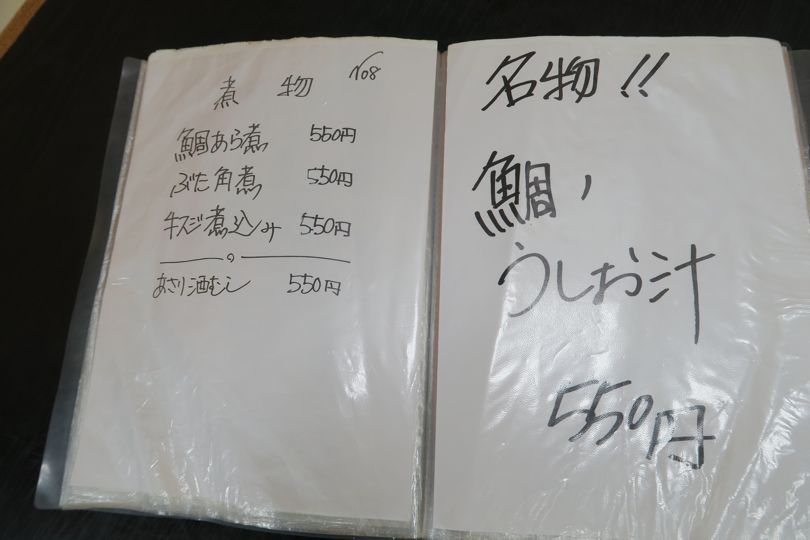 煮物 No8
鯛あら煮 550円
ぶた角煮 550円
牛スジ煮込み 550円
あさり酒むし 550円
名物!!
鯛ノ
うしお汁
550円